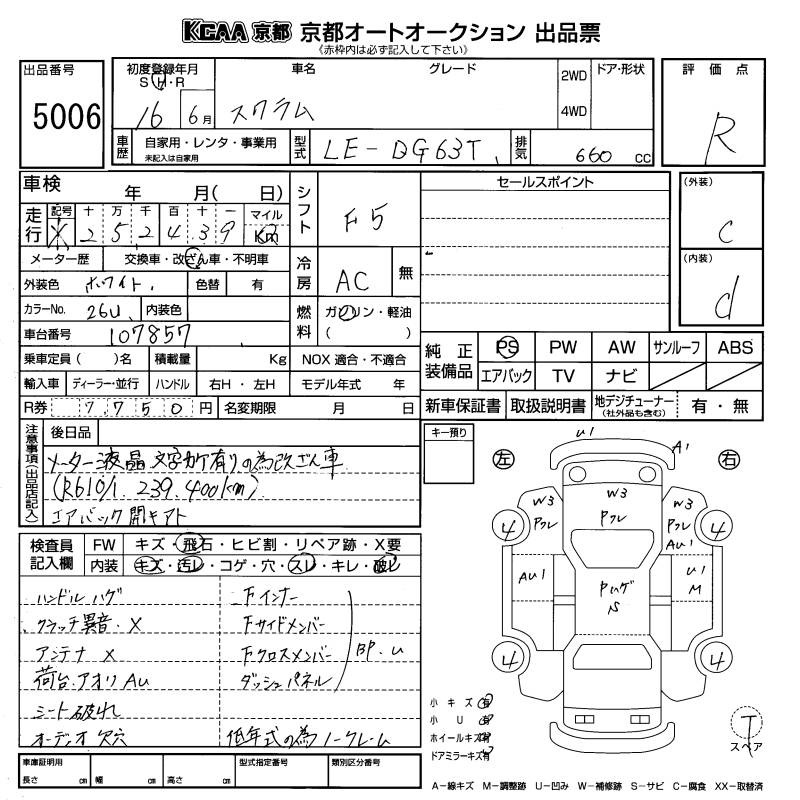 KCAA 京都 京都オートオークション 出品票
《赤枠内は必ず記入して下さい》
出品番号
5006
初度登録年月
S・H・R
16
6月
車名
スクラム
グレード
2WD
4WD
ドア・形状
評価点
R
車歴
自家用・レンタ・事業用
未記入は自家用
型式
LE-DG63T
排気
660 cc
車検 年 月( 日)
シフト
F5
セールスポイント
(外装)
C
(内装)
d
走行
記号 十 万 千 百 十 一 マイル
X 2 5 2 4 3 9 Km
メーター歴 交換車・改ざん車・不明車
冷房
AC
無
外装色 ホワイト
色替 有
カラーNo. 26U
内装色
燃料
ガソリン・軽油
( )
車台番号 107857
乗車定員( )名 積載量 Kg NOX 適合・不適合
輸入車 ディーラー・並行 ハンドル 右H・左H モデル年式 年
R券 7750円 名変期限 月 日
純正装備品
PS PW AW サンルーフ ABS
エアバック TV ナビ
新車保証書 取扱説明書 地デジチューナー(社外品も含む) 有・無
注意事項(出品店記入)
後日品
メーター液晶文字カケ有りの為改ざん車
(R6 10/1. 239.400km)
エアバック開キアト
キー預り
左
右
U1
A1
W3
Pクレ
W3
Pクレ
W3
Pクレ
AU1
AU1
U1
M
Pハゲ
S
4
4
4
4
検査員記入欄
FW キズ・飛石・ヒビ割・リペア跡・X要
内装 キズ・汚レ・コゲ・穴・スレ・キレ・破レ
ハンドルハゲ
クラッチ異音・X
アンテナ X
荷台.アオリAU
シート破れ
オーディオ欠穴
Fインナー
Fサイドメンバー
Fクロスメンバー
ダッシュパネル
BP.U
低年式の為ノークレーム
小キズ有
小U有
ホイールキズ有
ドアミラーキズ有
T
スペア
車庫証明用
長さ cm 幅 cm 高さ cm
型式指定番号
類別区分番号
A-線キズ M-調整跡 U-凹み W-補修跡 S-サビ C-腐食 XX-取替済